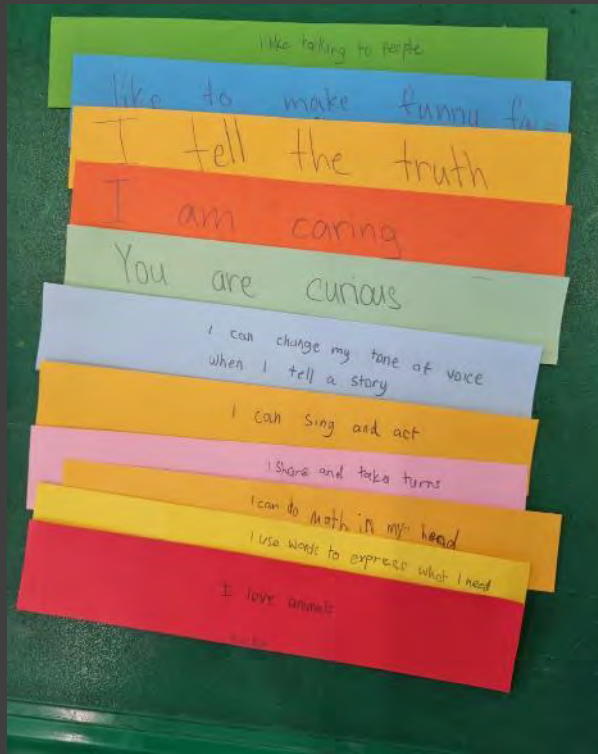 I like talking to people
like to make funny
I tell the truth
I am caring
You are curious
I can change my tone of voice
when I tell a story
I can sing and act
I share and take turns
I can do math in my head
I use words to express what I need
I love animals